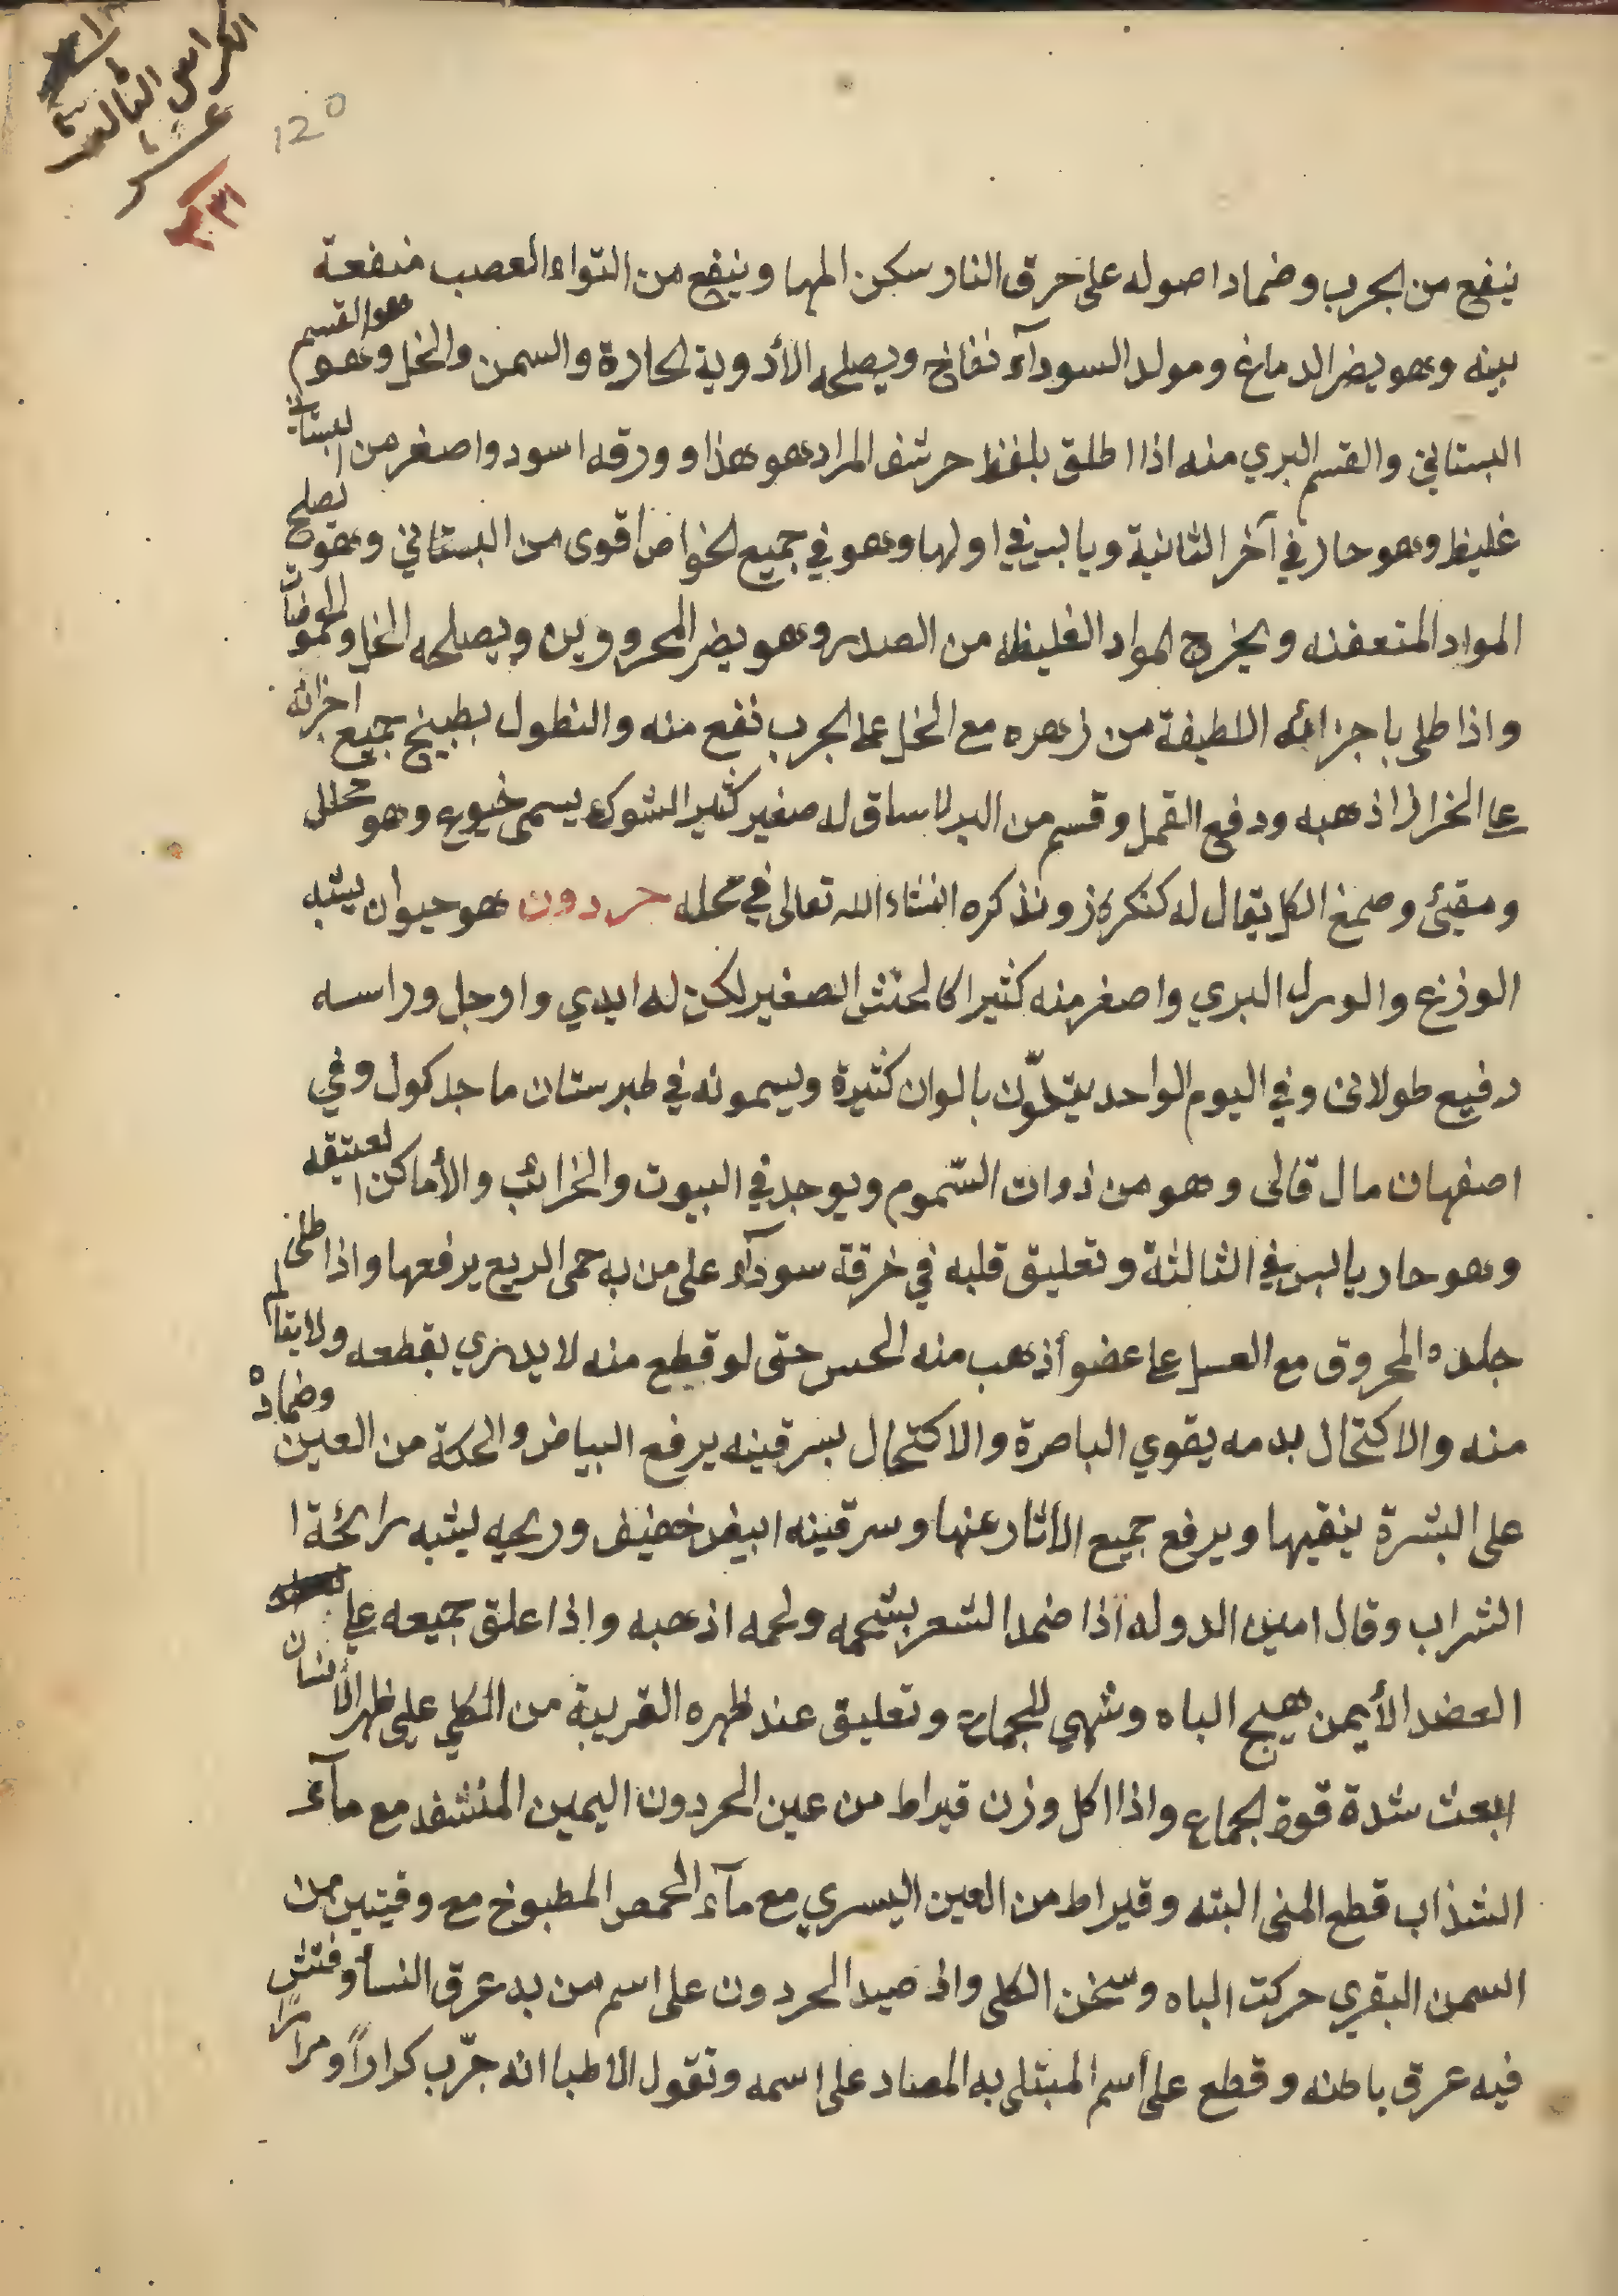 الكراس الثالث
عشر
١٣١
120
ينفع من الجرب وضماد اصوله على حرق النار سكن المها وينفع من التواء العصب منفعة
بينه وهو يضر الدماغ ومولد السودآء نفاخ ويصلحه الأدوية الحارة والسمن والخل وهو هو القسم
البستاني والقسم البري منه اذا اطلق بلفظ حرشف المراد هو هذا وورقه اسود واصغر من البستاني
غليظ وهو حار في آخر الثانية ويابس في اولها وهو في جميع الخواص اقوى من البستاني وهو يصلح
المواد المتعفنه ويخرج المواد الغليظه من الصدر وهو يضر المحرورين ويصلحه الخل والحموضات
واذا طلي باجزائه اللطيفة من زهره مع الخل على الجرب نفع منه والنطول بطبيخ جميع اجزائه
على الخراز اذهبه ودفع القمل وقسم من البر لا ساق له صغير كثير الشوك يسمى خيوع وهو محلل
ومقيئ وصمغ الكل يقال له كنكرزد ونذكره انشاء الله تعالى في محله حردون هو حيوان يشبه
الوزغ والورل البري واصغر منه كثيرا كالحنش الصغير لكن له ايدي وارجل وراسه
رفيع طولاني وفي اليوم الواحد يتلوّن بالوان كثيرة ويسمونه في طبرستان ماجد كول وفي
اصفهان مال قالى وهو من ذوات السّموم ويوجد في البيوت والخرائب والأماكن العتيقه
وهو حار يابس في الثالثة وتعليق قلبه في خرقة سودآء على من به حمى الربع يرفعها واذا طلي
جلده المحروق مع العسل على عضو أذهب منه الحس حتى لو قطع منه لا يدري بقطعه ولا يتألم
منه والاكتحال بدمه يقوي الباصرة والاكتحال بسرقينه يرفع البياض والحكة من العين وضماده
على البشرة ينقيها ويرفع جميع الأثار عنها وسرقينه ابيض خفيف وريحه يشبه رائحة ا
الشراب وقال امين الدوله اذا ضمد الشعر بشحمه ولحمه اذهبه واذا علق جميعه على
العضد الأيمن هيج الباه وشهي للجماع وتعليق عند ظهره القريبة من الكلي على ظهر الأنسان
ابعث شدة قوة الجماع واذا اكل وزن قيراط من عين الحردون اليمين المنشفه مع مآء
الشذاب قطع المنى البته وقيراط من العين اليسري مع مآء الحمص المطبوخ مع وقيتين من
السمن البقري حركت الباه وسخن الكلى واذ صيد الحردون على اسم من به عرق النسأ وفتش
فيه عرق باطنه وقطع على أسم المبتلى به المصاد على اسمه وتقول الأطبا انه جرّب كراراً ومراراً